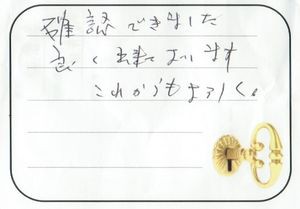 確認できました
良く出来ています
これからもよろしく。